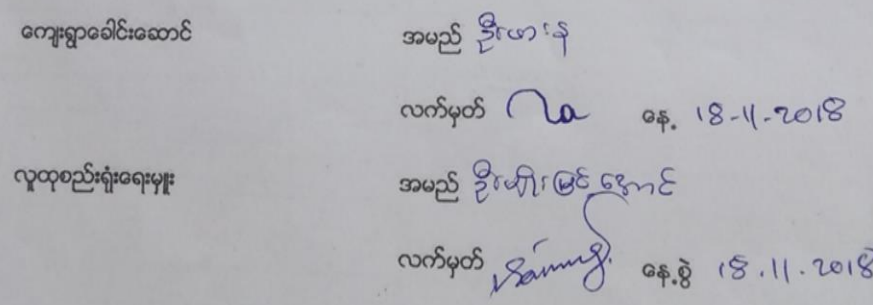 ကျေးရွာခေါင်းဆောင် အမည် ဦးဟားန
လက်မှတ် နေ့. 18-11-2018
လူထုစည်းရုံးရေးမှူး အမည် ဦးမျိုးမြင့်အောင်
လက်မှတ် နေ့.စွဲ 18.11.2018